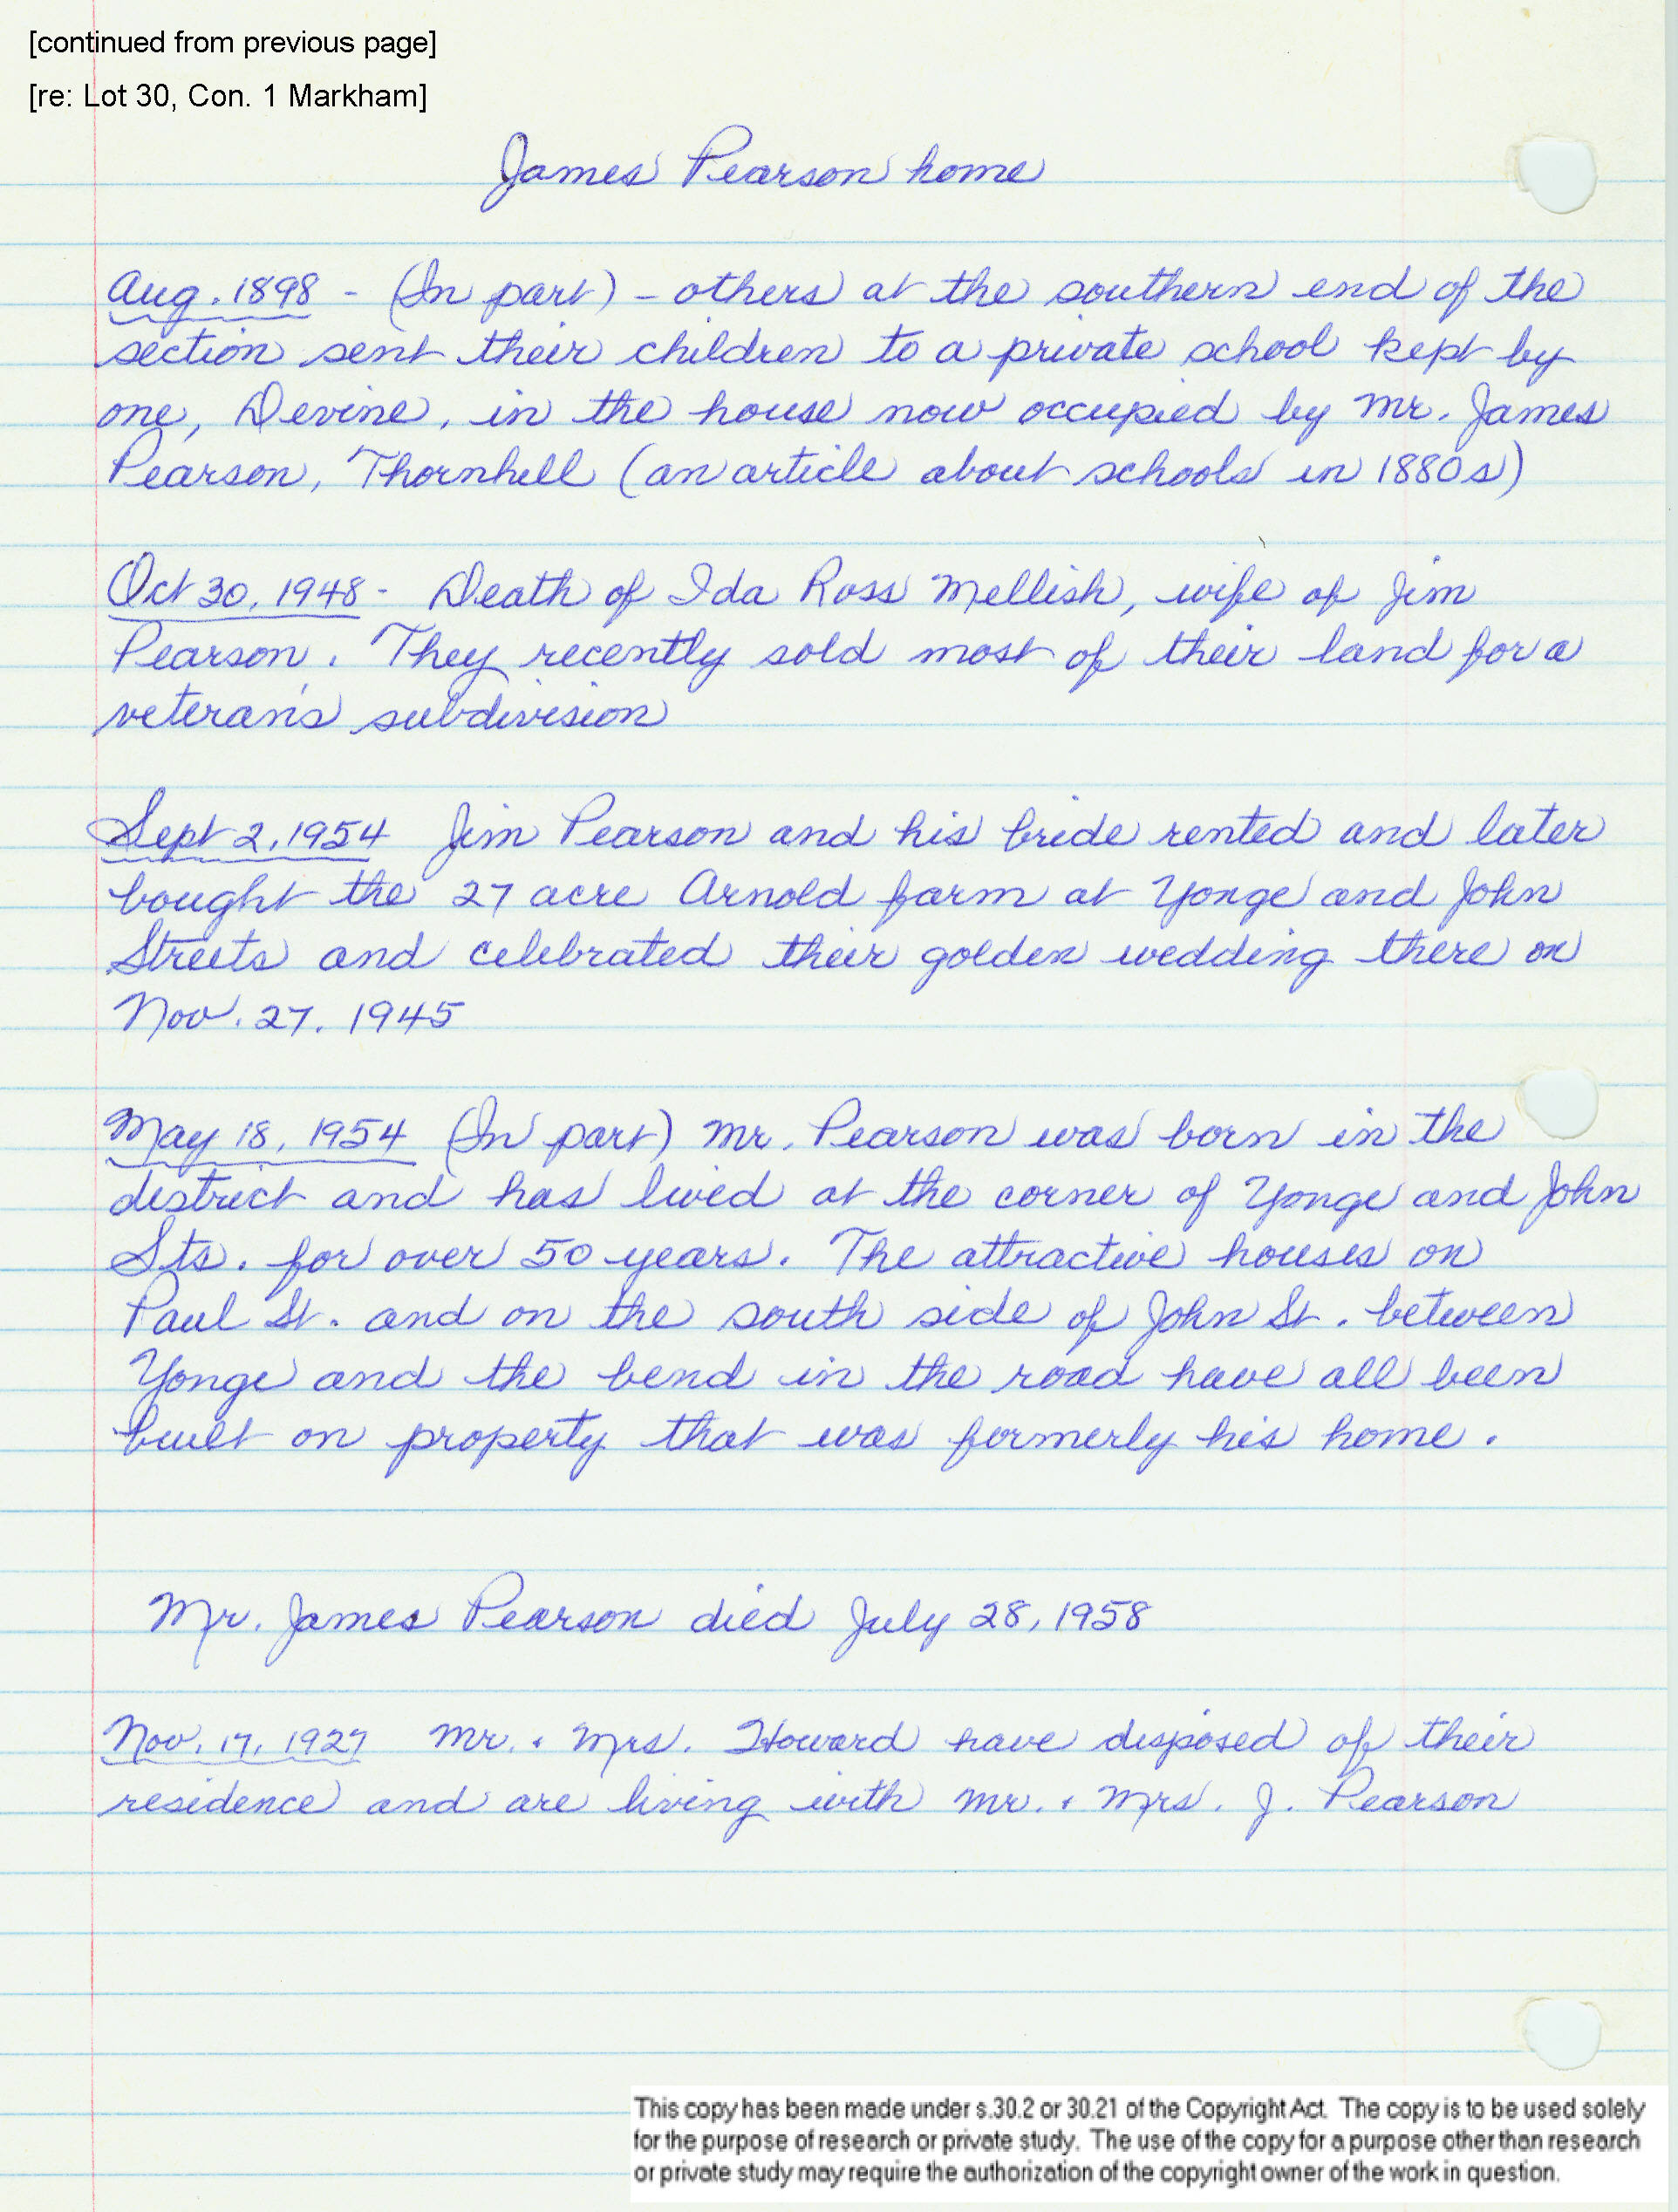 [continued from previous page]
[re: Lot 30, Con. 1 Markham]
James Pearson home
Aug. 1898 - (In part) - others at the southern end of the
section sent their children to a private school kept by
one, Devine, in the house now occupied by Mr. James
Pearson, Thornhill (an article about schools in 1880s)
Oct 30, 1948 - Death of Ida Ross Mellish, wife of Jim
Pearson. They recently sold most of their land for a
veteran's subdivision
Sept 2, 1954 Jim Pearson and his bride rented and later
bought the 27 acre Arnold farm at Yonge and John
Streets and celebrated their golden wedding there on
Nov. 27. 1945
May 18, 1954 (In part) Mr. Pearson was born in the
district and has lived at the corner of Yonge and John
Sts. for over 50 years. The attractive houses on
Paul St. and on the south side of John St. between
Yonge and the bend in the road have all been
built on property that was formerly his home.
Mr. James Pearson died July 28, 1958
Nov. 17, 1927 Mr. & Mrs. Howard have disposed of their
residence and are living with Mr. & Mrs. J. Pearson
This copy has been made under s.30.2 or 30.21 of the Copyright Act. The copy is to be used solely
for the purpose of research or private study. The use of the copy for a purpose other than research
or private study may require the authorization of the copyright owner of the work in question.